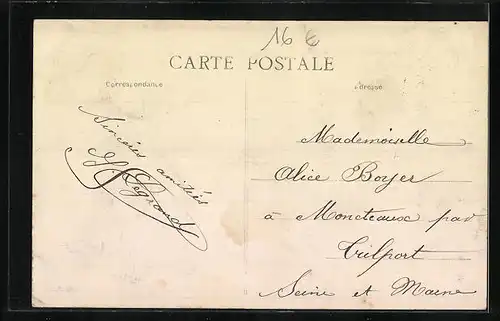 16 €
CARTE POSTALE
Correspondance
Adresse
Sincères amitiés
Legrand
Mademoiselle
Alice Boyer
à Moncteaux par
Trilport
Seine et Marne